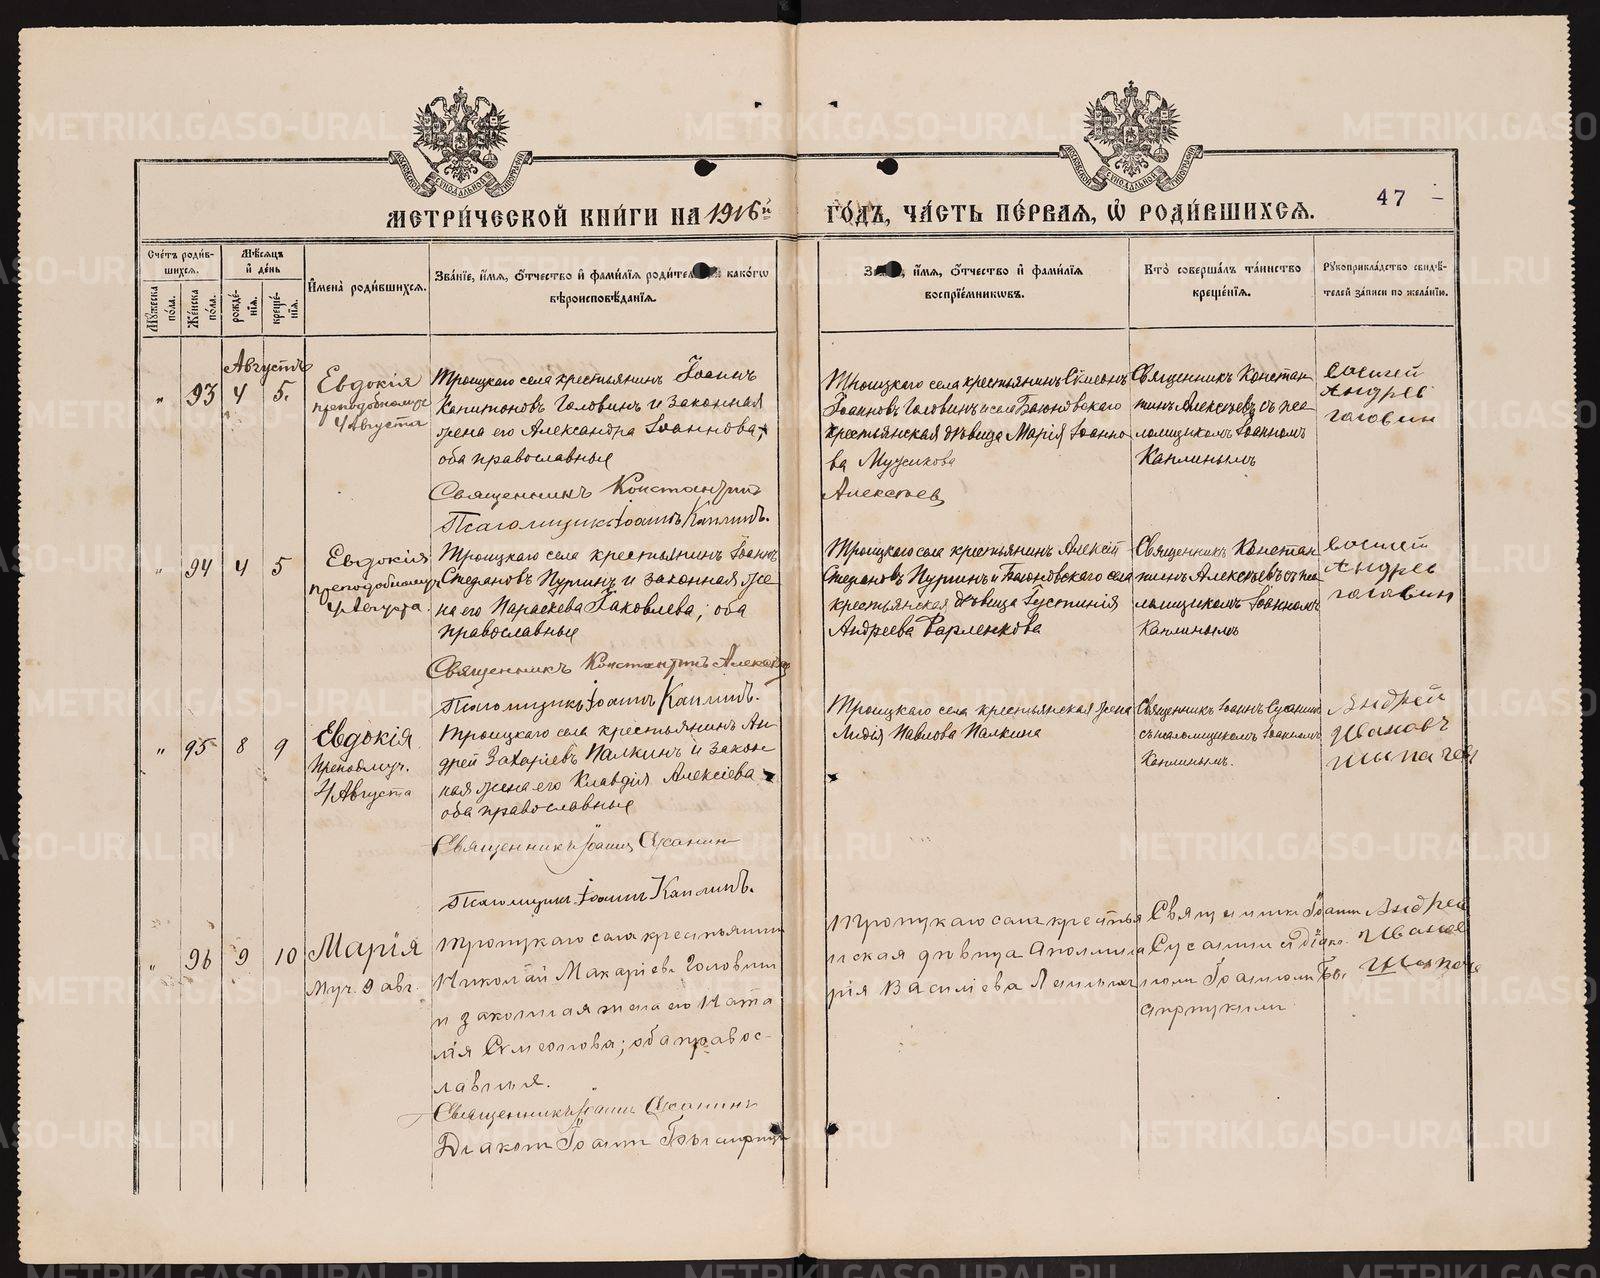 МЕТРИ́ЧЕСКОЙ КНИ́ГИ НА 1916й ГО́ДЪ, ЧА́СТЬ ПЕ́РВАЯ, Ѽ РОДИ́ВШИХСЯ.
47
Сче́тъ роди́в-
шихся.
Мꙋжеска по́ла.
Же́нска по́ла.
Мѣ́сяцъ
и҆ де́нь
рожде́-
нїя.
креще́-
нїя.
И҆мена̀ роди́вшихся.
Зва́нїе, и҆́мя, ѻ҆́тчество и҆ фами́лїя родителей, и҆ како́гѡ
вѣроисповѣ́данїя.
и҆́мя, ѻ҆́тчество и҆ фами́лїя
воспрїе́мникѡвъ.
Кто̀ соверша́лъ та́инство
креще́нїя.
Рꙋкоприкла́дство свидѣ́-
телей за́писи по жела́нїю.
Августъ
" 93 4 5.
Евдокія
преподобномуч
4 Августа
Троицкаго села крестьянинъ Іоаннъ
Капитоновъ Головинъ и законная
жена его Александра Іоаннова,
оба православные
Священникъ Константинъ
Псаломщикъ Іоаннъ Каплинъ.
Троицкаго села крестьянинъ Симеонъ
Іоанновъ Головинъ и села
крестьянская дѣвица Марія Іоанно
ва Мужикова
Алексѣев
Священникъ Констан
тинъ Алексѣевъ съ пса
ломщикомъ Іоанномъ
Каплинымъ
Андрев
гаговин
" 94 4 5
Евдокія
преподобномуч
4 Августа.
Троицкаго села крестьянинъ Іоаннъ
Стефановъ и законная же
на его Параскева Іаковлева; оба
православные
Священникъ Константинъ Алексѣев
Псаломщикъ Іоаннъ Каплинъ.
Троицкаго села крестьянинъ Алексій
Стефановъ и села
крестьянская дѣвица Іустинія
Андреева Фарленкова
Священникъ Констан
тинъ Алексѣевъ съ пса
ломщикомъ Іоанномъ
Каплинымъ
Андрев
гаговин
" 95 8 9
Евдокія
Преподмуч.
4 Августа
Троицкаго села крестьянинъ Ан
дрей Захаріевъ Палкинъ и закон
ная жена его Клавдія Алексіева
оба православные
Священникъ Іоаннъ Сусанин
Псаломщикъ Іоаннъ Каплинъ.
Троицкаго села крестьянская жена
Лидія Павлова Палкина
Священникъ Іоаннъ Сусанинъ
съ псаломщикомъ Іоанномъ
Каплинымъ.
Андрей
Иванов
Шыпачев
" 96 9 10
Марія
Муч. 9 авг.
Троицкаго села крестьянин
Николай Макаріев Головин
и законная жена его Ната
лія Симеонова; оба правос-
лавныя.
Священникъ Іоаннъ Сусанинъ
Діакон Іоанн
Троицкаго села крестья
нская дѣвица Аполлина
рія Василіева
Священник Іоанн
Сусанин и діако-
ном Іоанном
Андрей
Иванов
METRIKI.GASO-URAL.RU